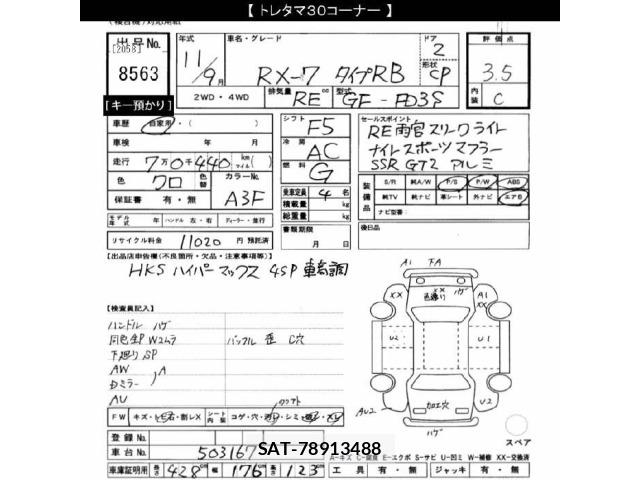 【 トレタマ30コーナー 】
出品No.
[2058]
8563
【キー預かり】
年式
11/9月
車名・グレード
RX-7 タイプRB
ドア
2
形状
CP
評価点
3.5
内装
C
2WD・4WD
排気量
RE
cc
型式
GF-FD3S
車歴
自家用・(
)
車検
年
月
走行
7万0千440
km
マイル
(
)
色
クロ
色替
カラーNo.
A3F
保証書
有・無
シフト
F5
冷房
AC
燃料
G
乗車定員
4
名
積載量
kg
総重量
kg
セールスポイント
スリークライト
ナイトスポーツマフラー
SSR GT2 アルミ
装備品
S/R
純A/W
P/S
P/W
ABS
純TV
純ナビ
革シート
外ナビ
エアB
ナビ型番
モデル年式
年
ハンドル
左・右
ディーラー・並行
書類期限
月
日
後日品
リサイクル料金
11020
円
預託済
【出品店申告欄(不良箇所・欠品・注意事項等)】
HKS ハイパーマックス 4SP 車高調
【検査員記入】
ハンドル ハゲ
下廻りSP
AW
AU
A
C穴
FW
キズ・
シート内装
コゲ・穴・
登録No.
車台No.
503167
車庫証明用
長さ
428
cm
幅
176
cm
高さ
123
cm
A1
FA
XX
XX
ハゲ
A1
XX
色褪り
U2
U1
加工穴
AU2
U2
ハゲ
スペア
A-キズ
E-エクボ
S-サビ
U-凹ミ
W-補修
XX-交換済
工具
有・無
ジャッキ
有・無
SAT-78913488